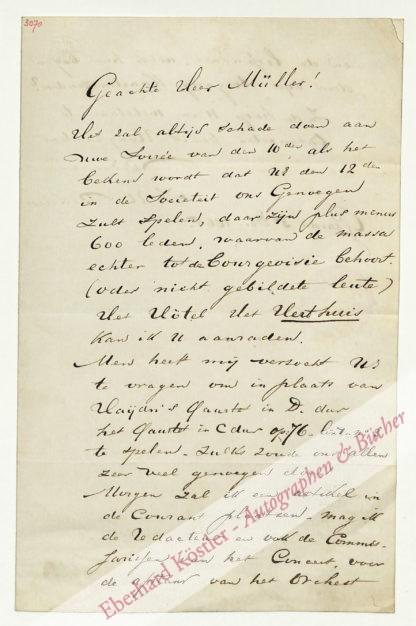 3070
Geachte Heer Müller!
Het zal altijd schade doen aan
Uwe Soirée van den 10den, als het
bekend wordt dat UE den 12den
in de Societeit ons Genoegen
zult spelen, daar zijn plus minus
600 leden, waarvan de massa
echter tot de Bourgeoisie behoort
(oder nicht gebildete leute)
Het Hôtel Het Herthuis
kan ik U aanraden.
Men heeft mij verzocht UE
te vragen om in plaats van
Haydn's Quartet in D. dur
het Quartet in C dur op 76
te spelen. Zulks zoude ons allen
zeer veel genoegen
Morgen zal ik een artikel in
de Courant plaatsen. mag ik
de Redacteur en ook de Commis-
sarissen van het Concert, voor
de van het Orchest
Eberhard Köstler - Autographen & Bücher